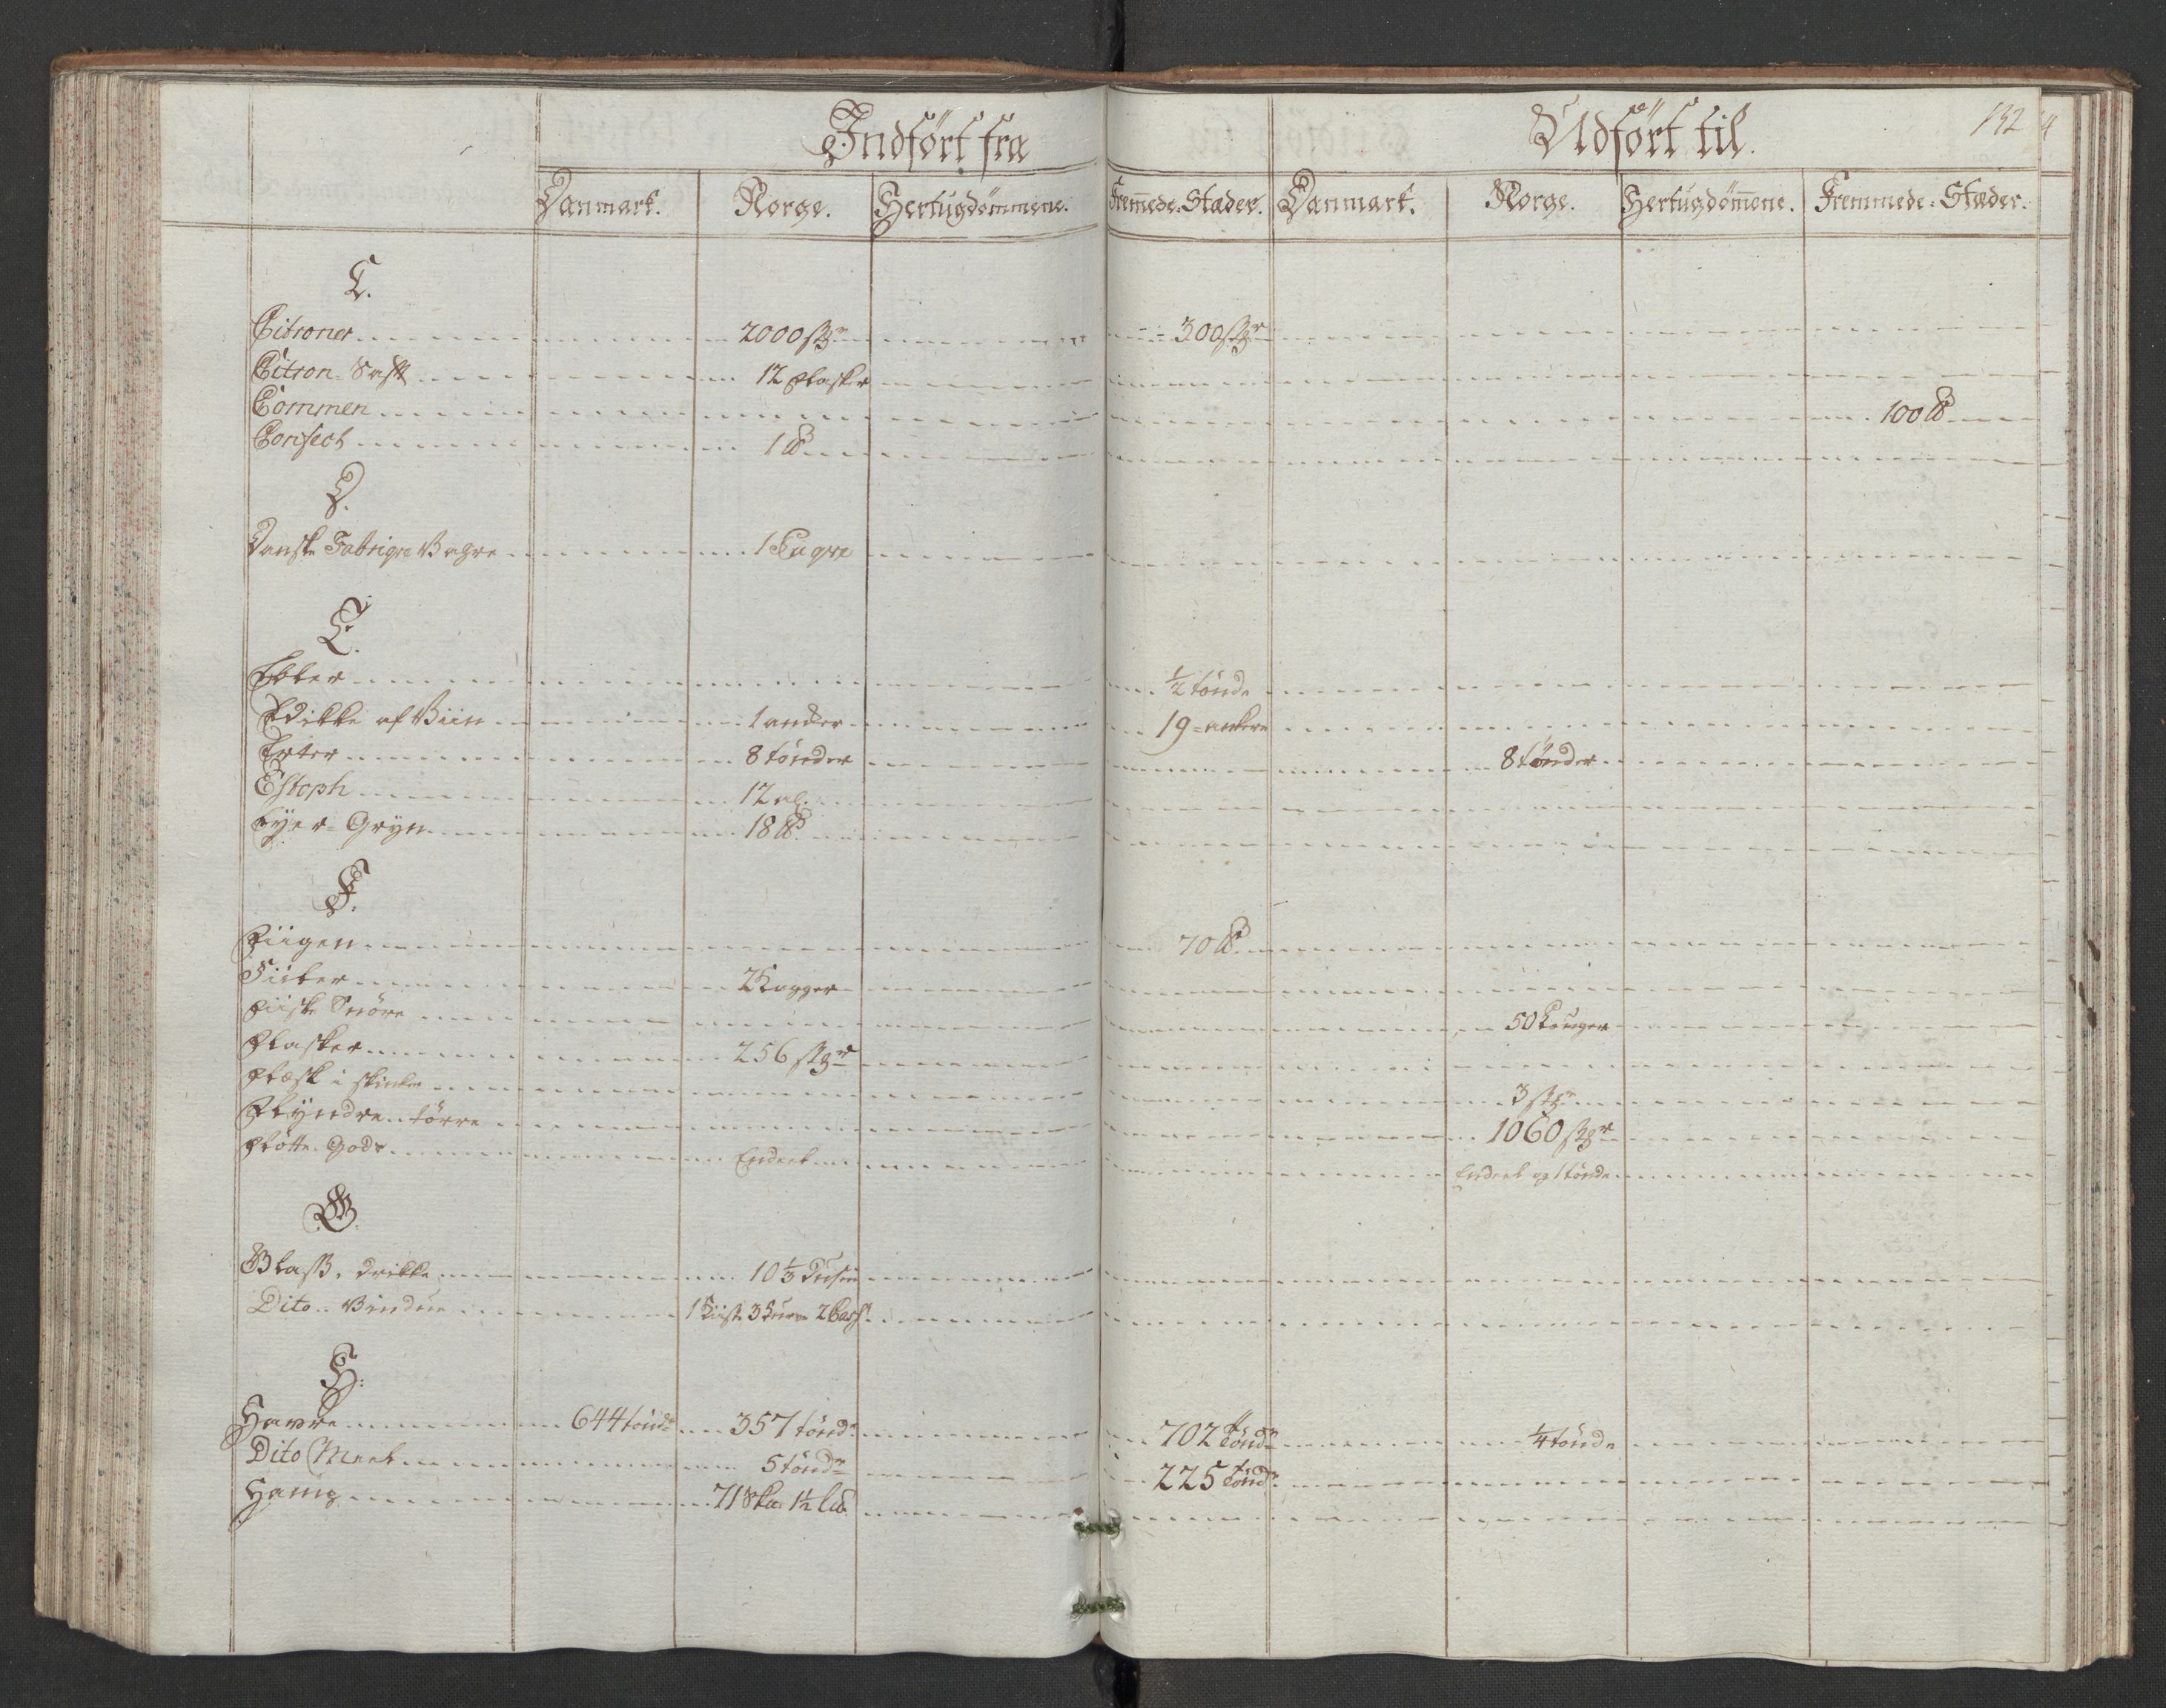 Indført fra Udført til. 132
Danmark. Norge. Hertugdømmene. Fremede Stæder. Danmark. Norge. Hertugdømene. Fremmede Stæder.
C.
Citroner 2000 st 300 st
Citron Saft 12 Flasker
Commen 100 ℔
Confect 1 ℔
D.
Danske Fabrique Vahre 1 Kagre
E.
Ebler ½ tønde
Edikke af Viin 1 anker 19 ankere
Erter 8 tønder 8 tønder
Estoph 12 al.
Eyer Gryn 18 ℔
F.
Fiigen 70 ℔
Fiiler 2 Kagger
Fiiske Snøre 50
Flasker 256 st
Flæsk i skinker 3 st
Flyndre tørre 1060 st
Fløtte Gods Endeel Endeel og 1 tønde
G.
Glass, drikke 10 ⅓ Dusin
Dito Vindue 1 Kiste 3 2
H:
Havre 644 tønd 357 tønd 702 tønd ¼ tønde
Dito Meel 5 tønd 225 tønd
Hamp 71 1½ L℔